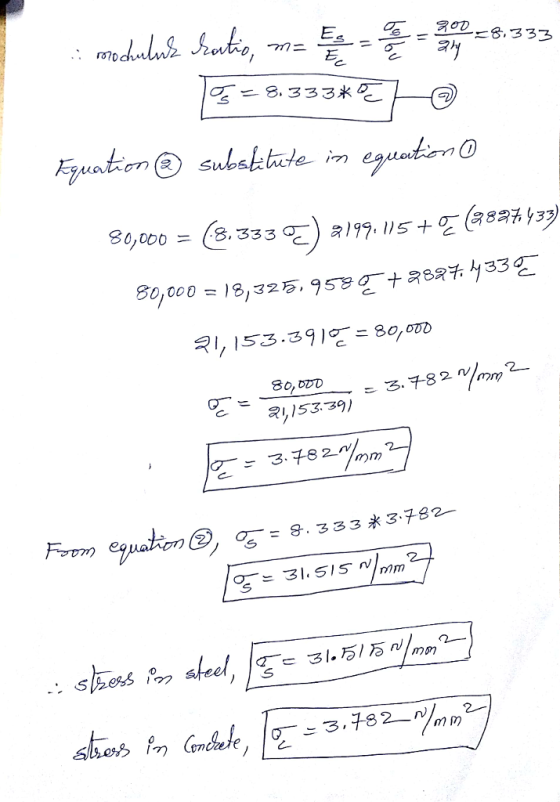 ∴ modulus ratio, m = Es/Ec = σs/σc = 200/24 = 8.333
σs = 8.333 * σc — ②
Equation ② substitute in equation ①
80,000 = (8.333 σc) 2199.115 + σc (2827.433)
80,000 = 18,325.958 σc + 2827.433 σc
21,153.391 σc = 80,000
σc = 80,000/21,153.391 = 3.782 N/mm²
σc = 3.782 N/mm²
From equation ②, σs = 8.333 * 3.782
σs = 31.515 N/mm²
∴ stress in steel, σs = 31.515 N/mm²
stress in Concrete, σc = 3.782 N/mm²